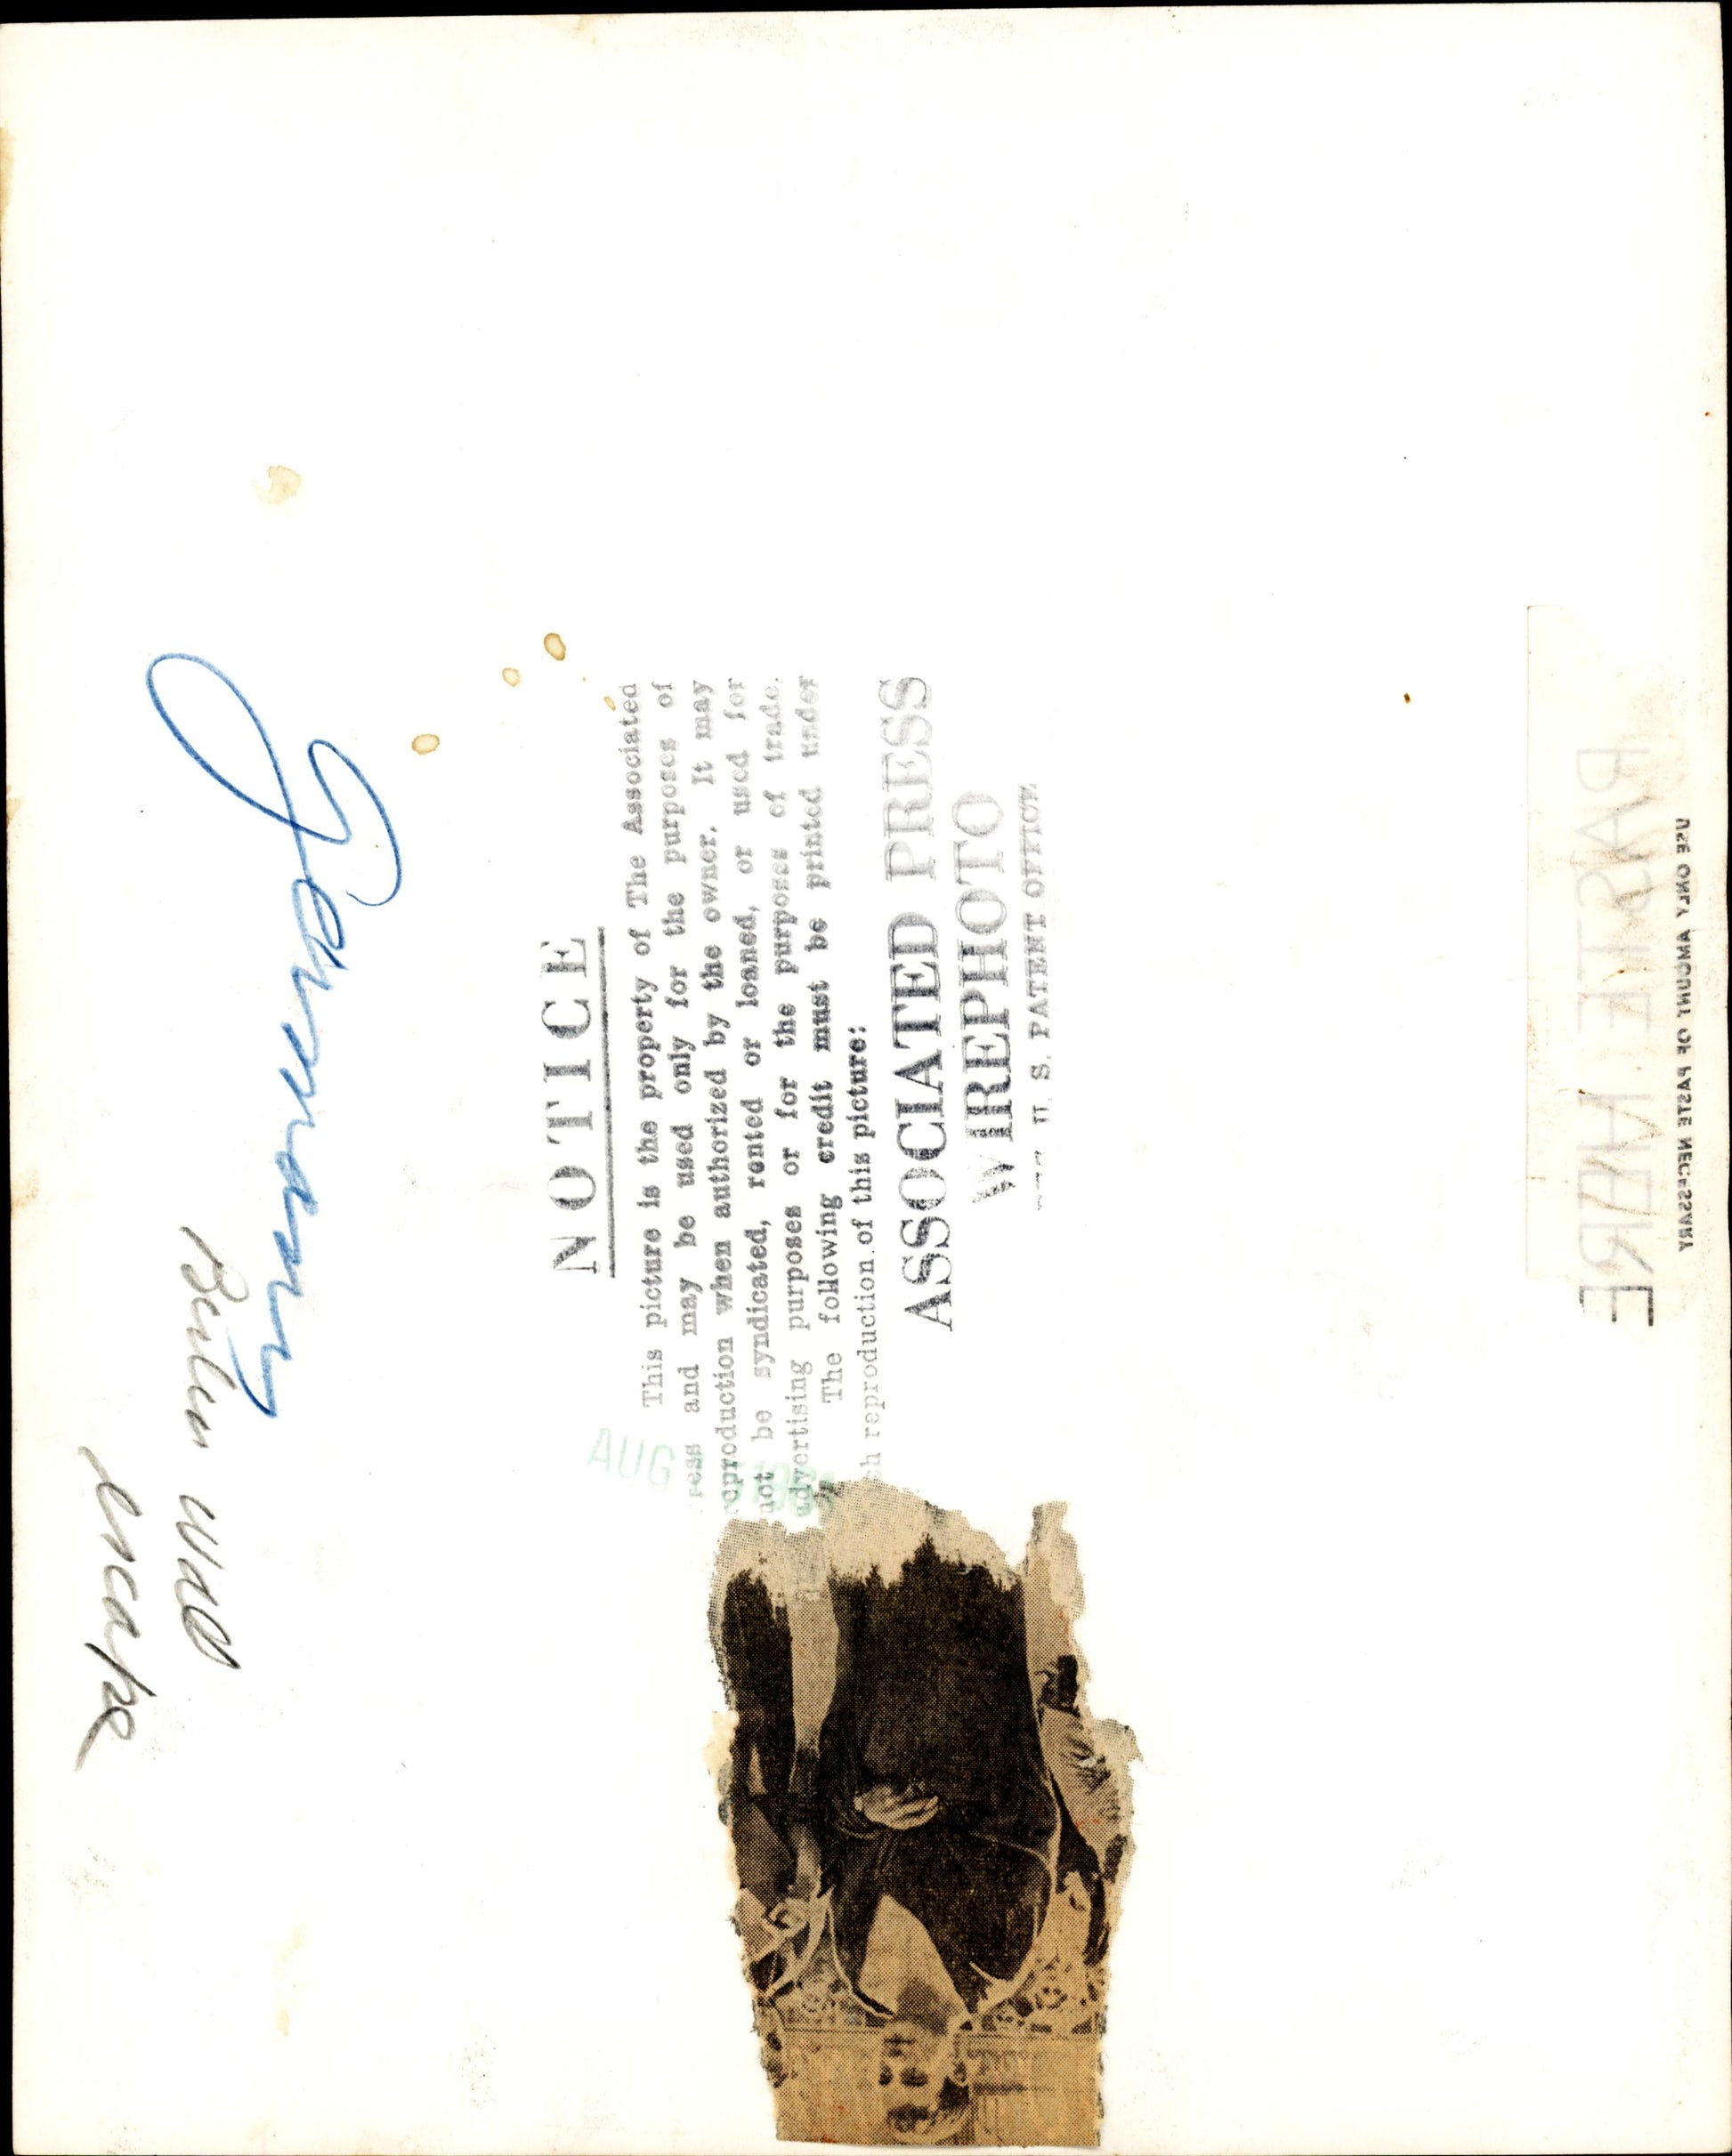 Germany
Berlin Wall
escape
NOTICE
This picture is the property of The Associated
ress and may be used only for the purposes of
eproduction when authorized by the owner. It may
not be syndicated, rented or loaned, or used for
advertising purposes or for the purposes of trade.
The following credit must be printed under
ch reproduction of this picture:
ASSOCIATED PRESS
WIREPHOTO
U. S. PATENT OFFICE
AUG
PASTE HERE
USE ONLY AMOUNT OF PASTE NECESSARY